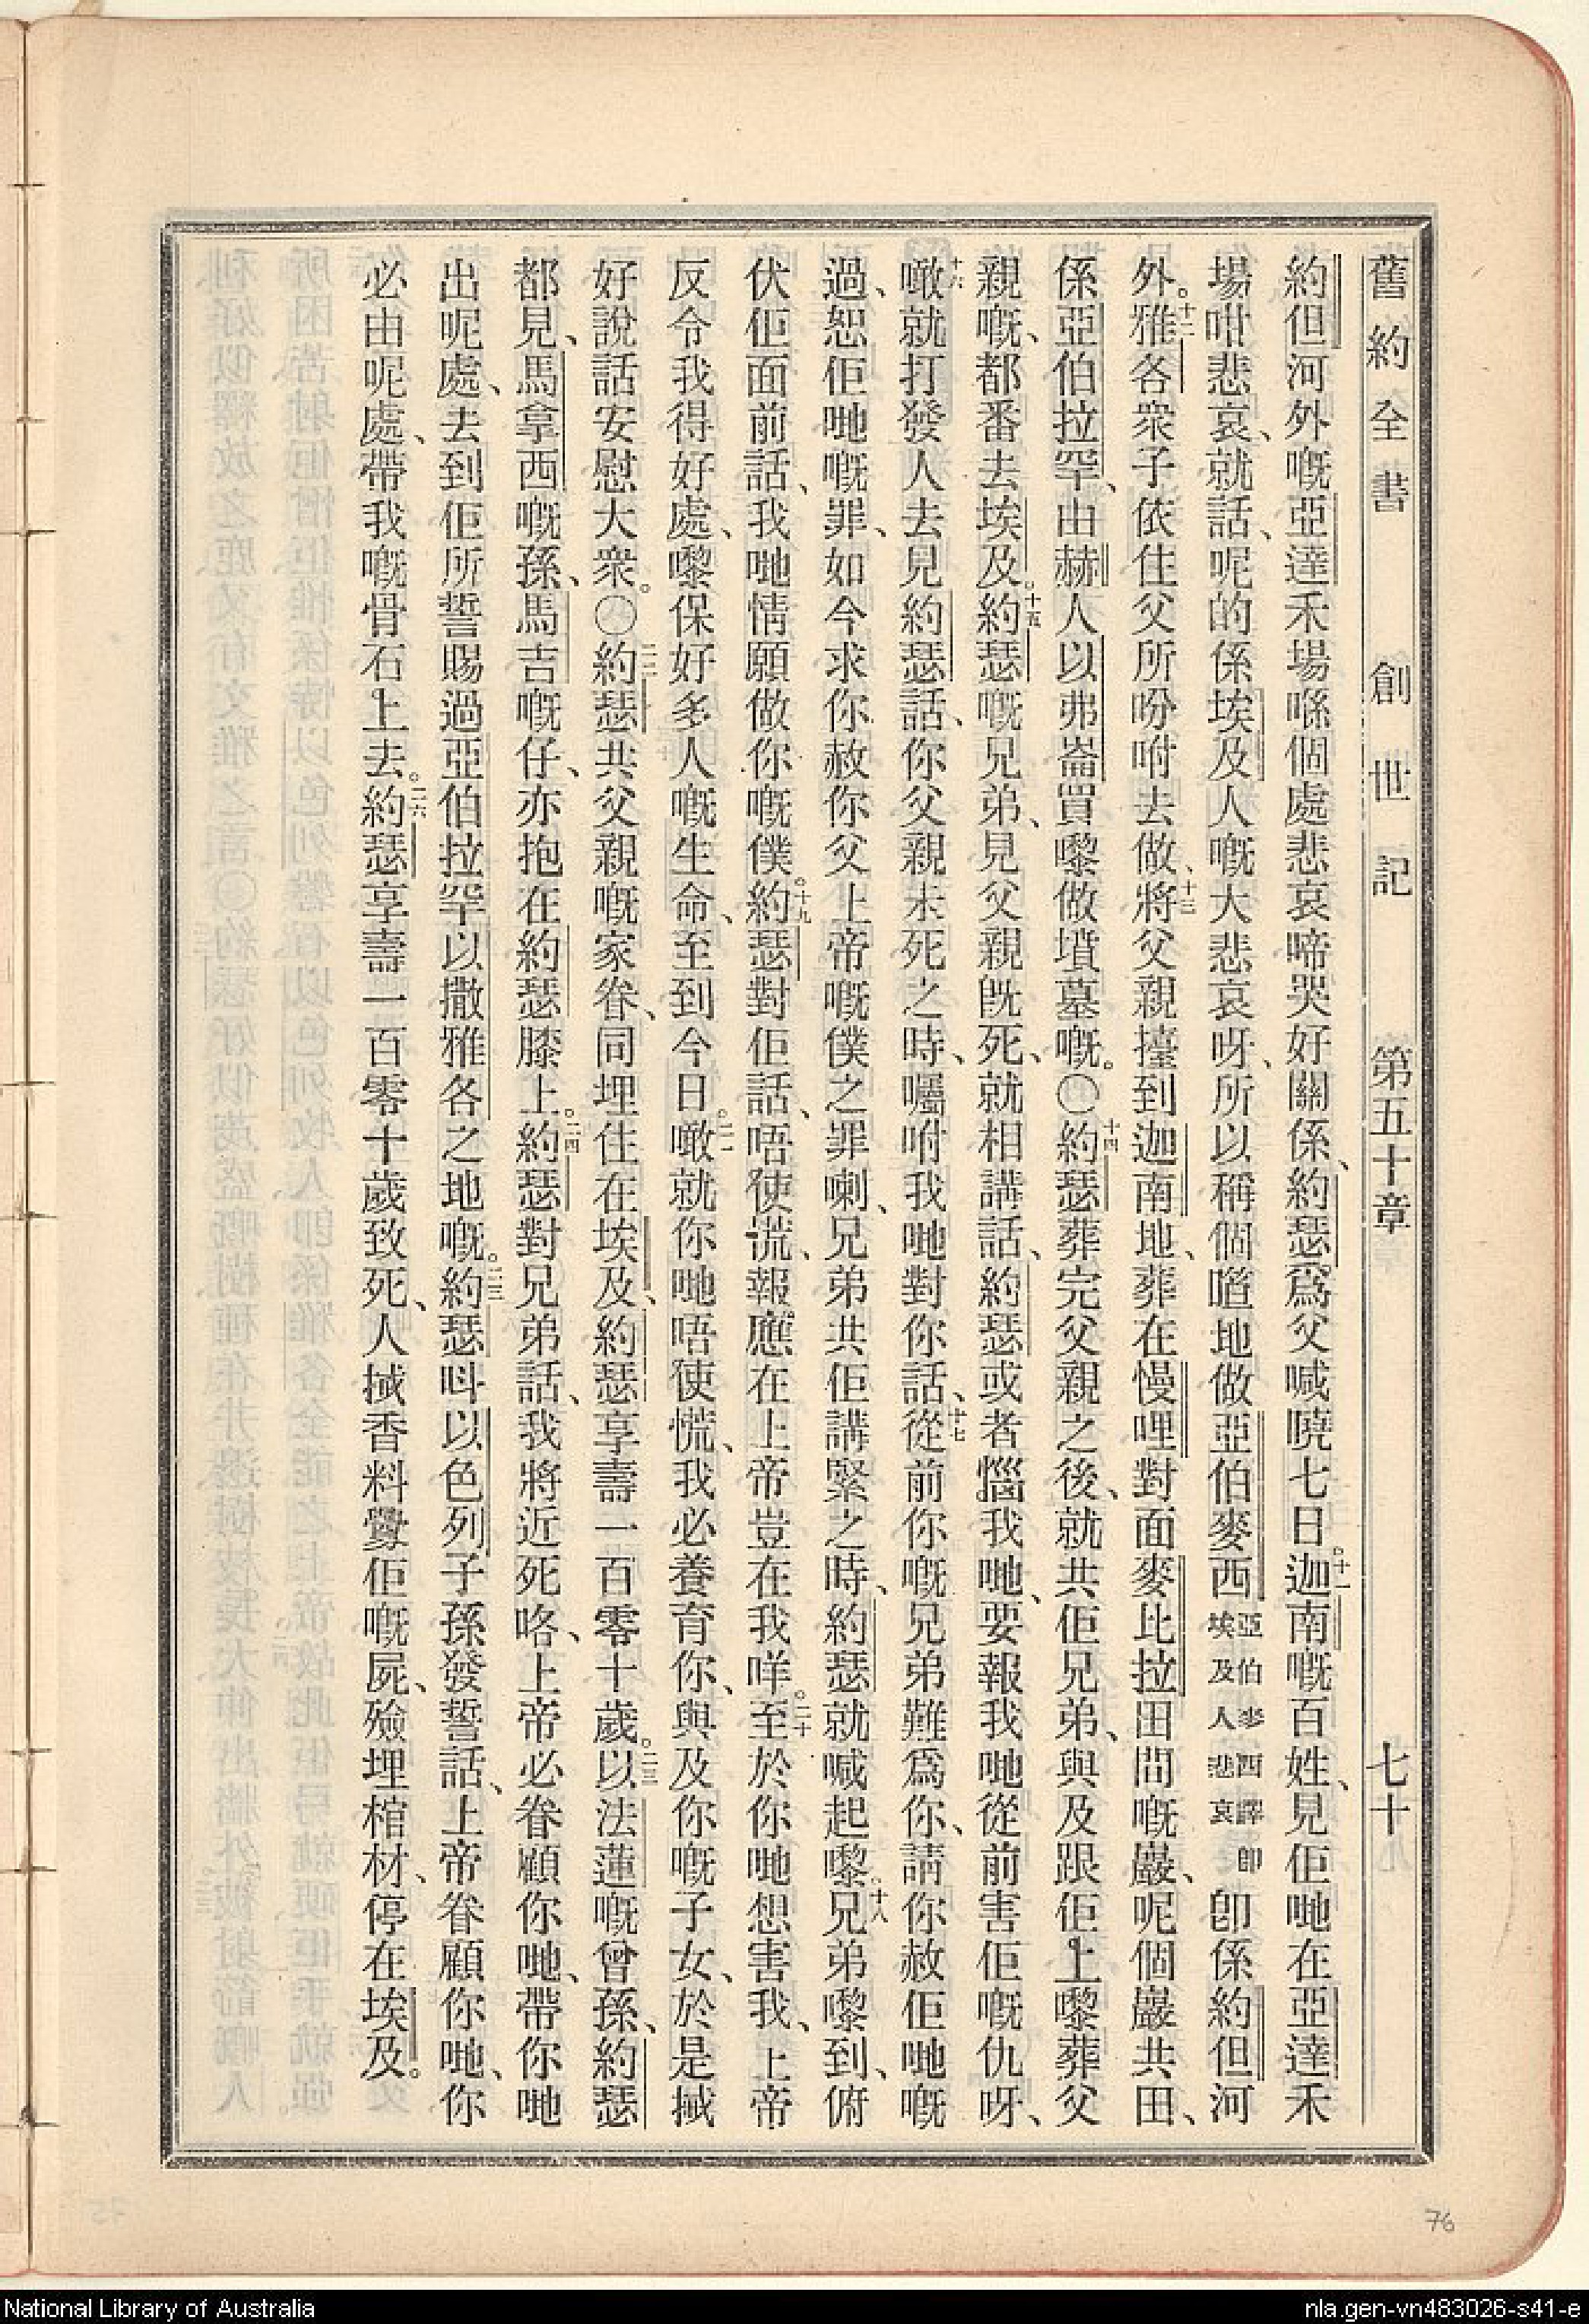 舊約全書 創世記 第五十章 七十
約但河外嘅亞達禾場喺個處悲哀啼哭好關係、約瑟爲父喊曉七日。十一迦南嘅百姓、見佢哋在亞達禾
場咁悲哀、就話、呢的係埃及人嘅大悲哀呀、所以稱個笪地做亞伯麥西亞伯麥西譯卽埃及人悲哀卽係約但河
外。十二雅各衆子依住父所吩咐去做、十三將父親擡到迦南地、葬在慢哩對面麥比拉田間嘅巖、呢個巖共田、
係亞伯拉罕、由赫人以弗崙買嚟做墳墓嘅。〇十四約瑟葬完父親之後、就共佢兄弟、與及跟佢上嚟葬父
親嘅、都番去埃及。十五約瑟嘅兄弟、見父親旣死、就相講話、約瑟或者惱我哋、要報我哋從前害佢嘅仇呀、
十六噉就打發人去見約瑟話、你父親未死之時、囑咐我哋對你話、十七從前你嘅兄弟難爲你、請你赦佢哋嘅
過、恕佢哋嘅罪、如今求你赦你父上帝嘅僕之罪喇、兄弟共佢講緊之時、約瑟就喊起嚟。十八兄弟嚟到、俯
伏佢面前話、我哋情願做你嘅僕。十九約瑟對佢話、唔使慌、報應在上帝豈在我咩。二十至於你哋想害我、上帝
反令我得好處、嚟保好多人嘅生命、至到今日。二一噉就你哋唔使慌、我必養育你、與及你嘅子女、於是搣
好說話安慰大衆。〇二二約瑟共父親嘅家眷、同埋住在埃及、約瑟享壽一百零十歲。二三以法蓮嘅曾孫、約瑟
都見、馬拿西嘅孫、馬吉嘅仔、亦抱在約瑟膝上。二四約瑟對兄弟話、我將近死咯、上帝必眷顧你哋、帶你哋
出呢處、去到佢所誓賜過亞伯拉罕以撒雅各之地嘅。二五約瑟叫以色列子孫發誓話、上帝眷顧你哋、你
必由呢處、帶我嘅骨石上去。二六約瑟享壽一百零十歲致死、人搣香料釁佢嘅屍、殮埋棺材、停在埃及。
76
National Library of Australia
nla.gen-vn483026-s41-e